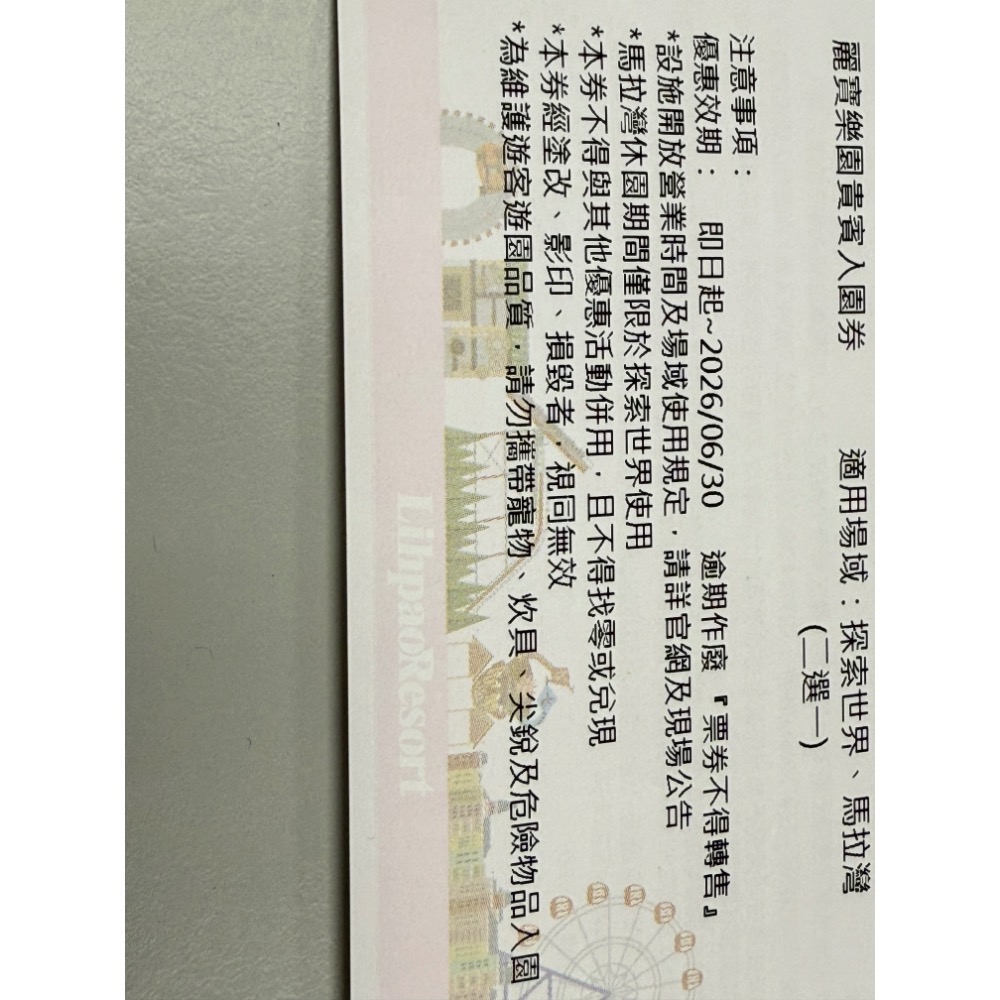 麗寶樂園貴賓入園券 適用場域：探索世界、馬拉灣
(二選一)
注意事項：
優惠效期： 即日起~2026/06/30 逾期作廢『票券不得轉售』
*設施開放營業時間及場域使用規定，請詳官網及現場公告
*馬拉灣休園期間僅限於探索世界使用
*本券不得與其他優惠活動併用，且不得找零或兌現
*本券經塗改、影印、損毀者，視同無效
*為維護遊客遊園品質，請勿攜帶寵物、炊具、尖銳及危險物品入園
LihpaoResort